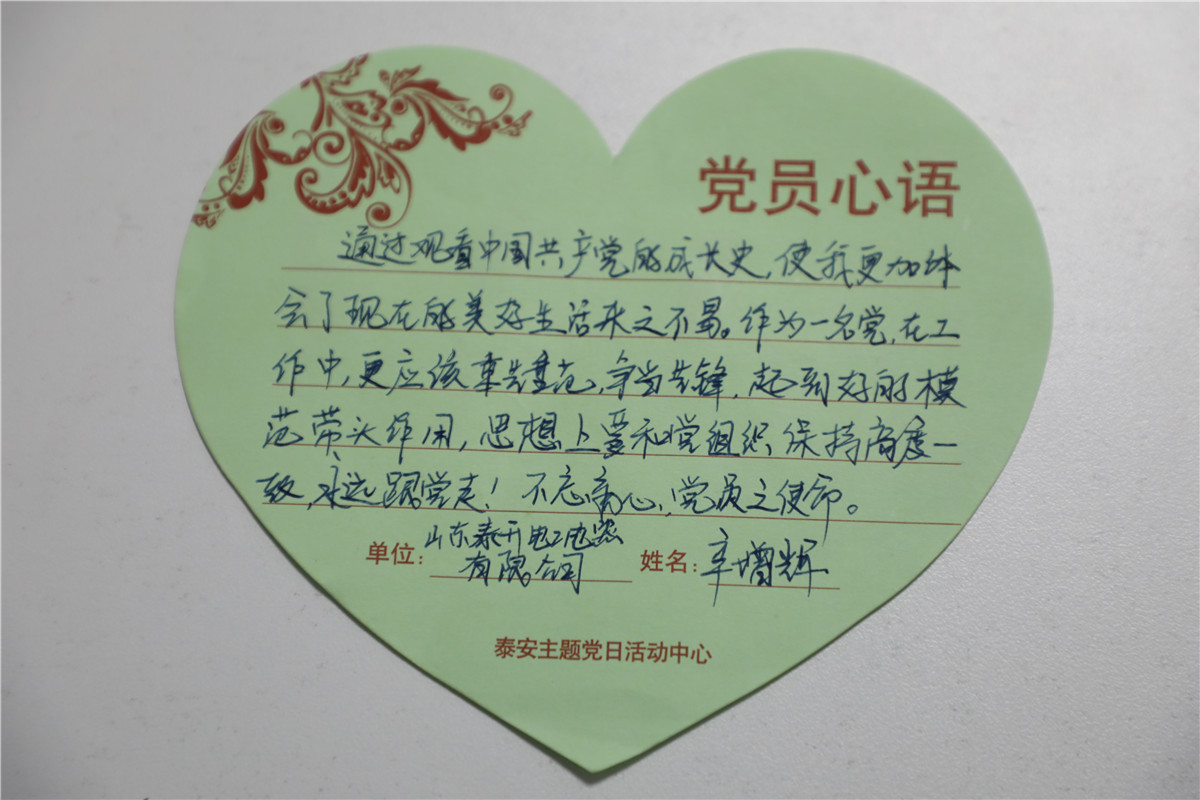 党员心语
通过观看中国共产党的成长史,使我更加体
会了现在的美好生活来之不易。作为一名党,在工
作中,更应该率先垂范,争当先锋,起到好的模
范带头作用,思想上要和党组织保持高度一
致,永远跟党走!不忘初心,党员之使命。
单位:山东泰开电工电器
有限公司
姓名:辛增辉
泰安主题党日活动中心